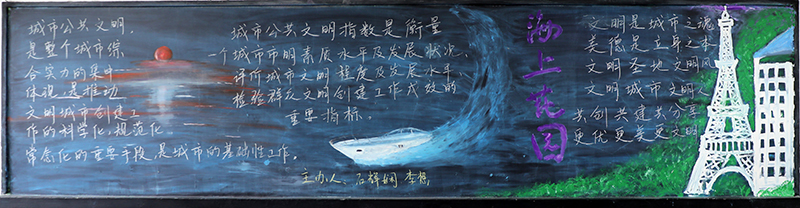 城市公共文明,
是整个城市综
合实力的集中
体现,是推动
文明城市创建工
作的科学化,规范化
常态化的重要手段,是城市的基础性工作。
城市公共文明指数是衡量
一个城市市明素质水平及发展状况,
评价城市文明程度及发展水平、
检验群众文明创建工作成效的
重要指标。
海上花园
文明是城市之魂
美德是立身之本
文明圣地文明风
文明城市文明人
共创共建共分享
更优更美更文明
主办人:石辉娴 李想